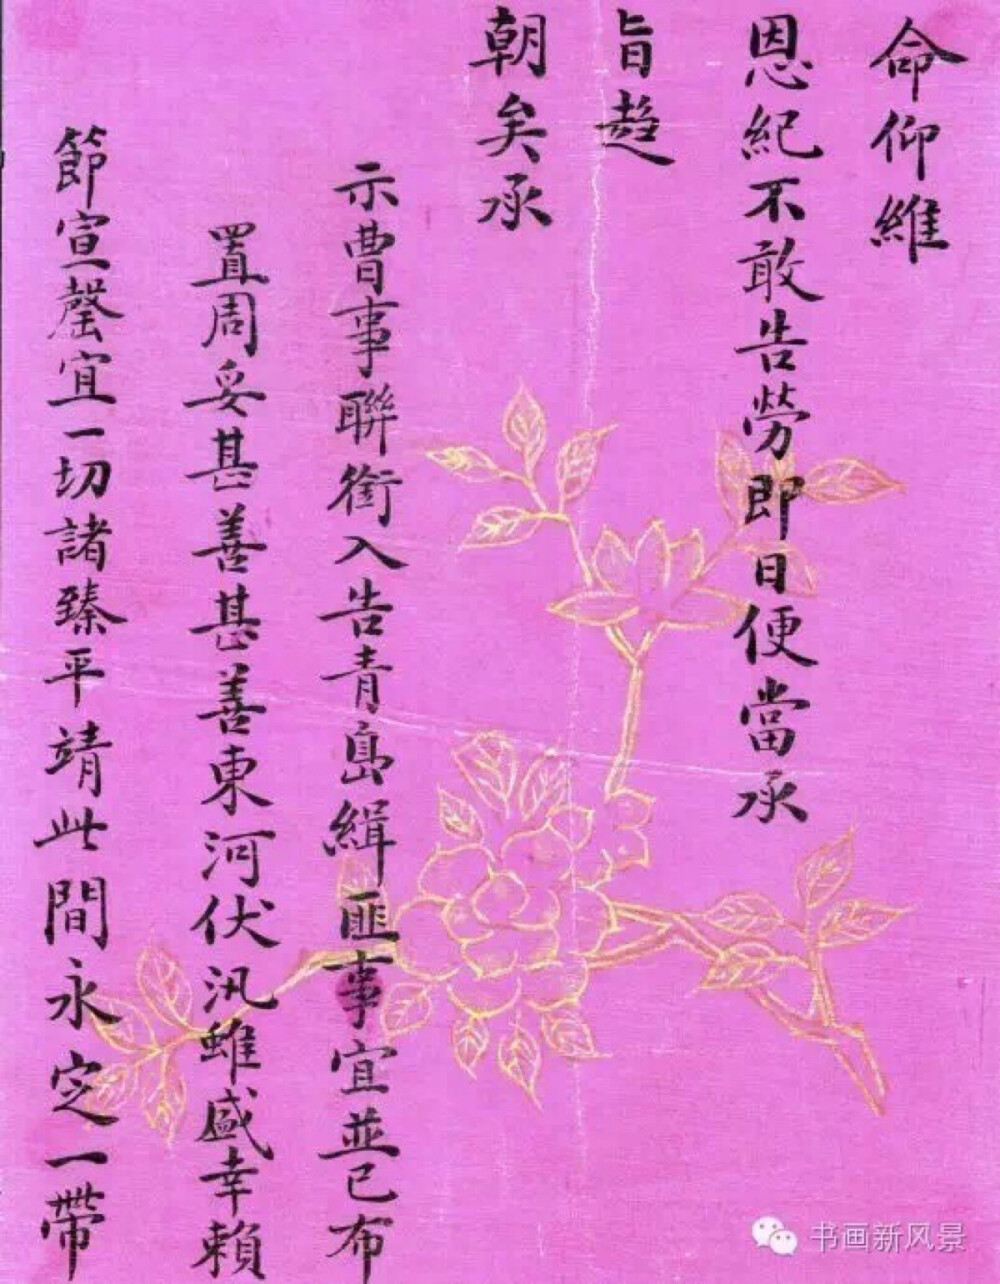 命仰維
恩紀不敢告勞即日便當承
旨趨
朝矣承
示曹事聯銜入告青島緝匪事宜並已布
置周妥甚善甚善東河伏汛雖盛幸賴
節宣罄宜一切諸臻平靖此間永定一帶
书画新风景